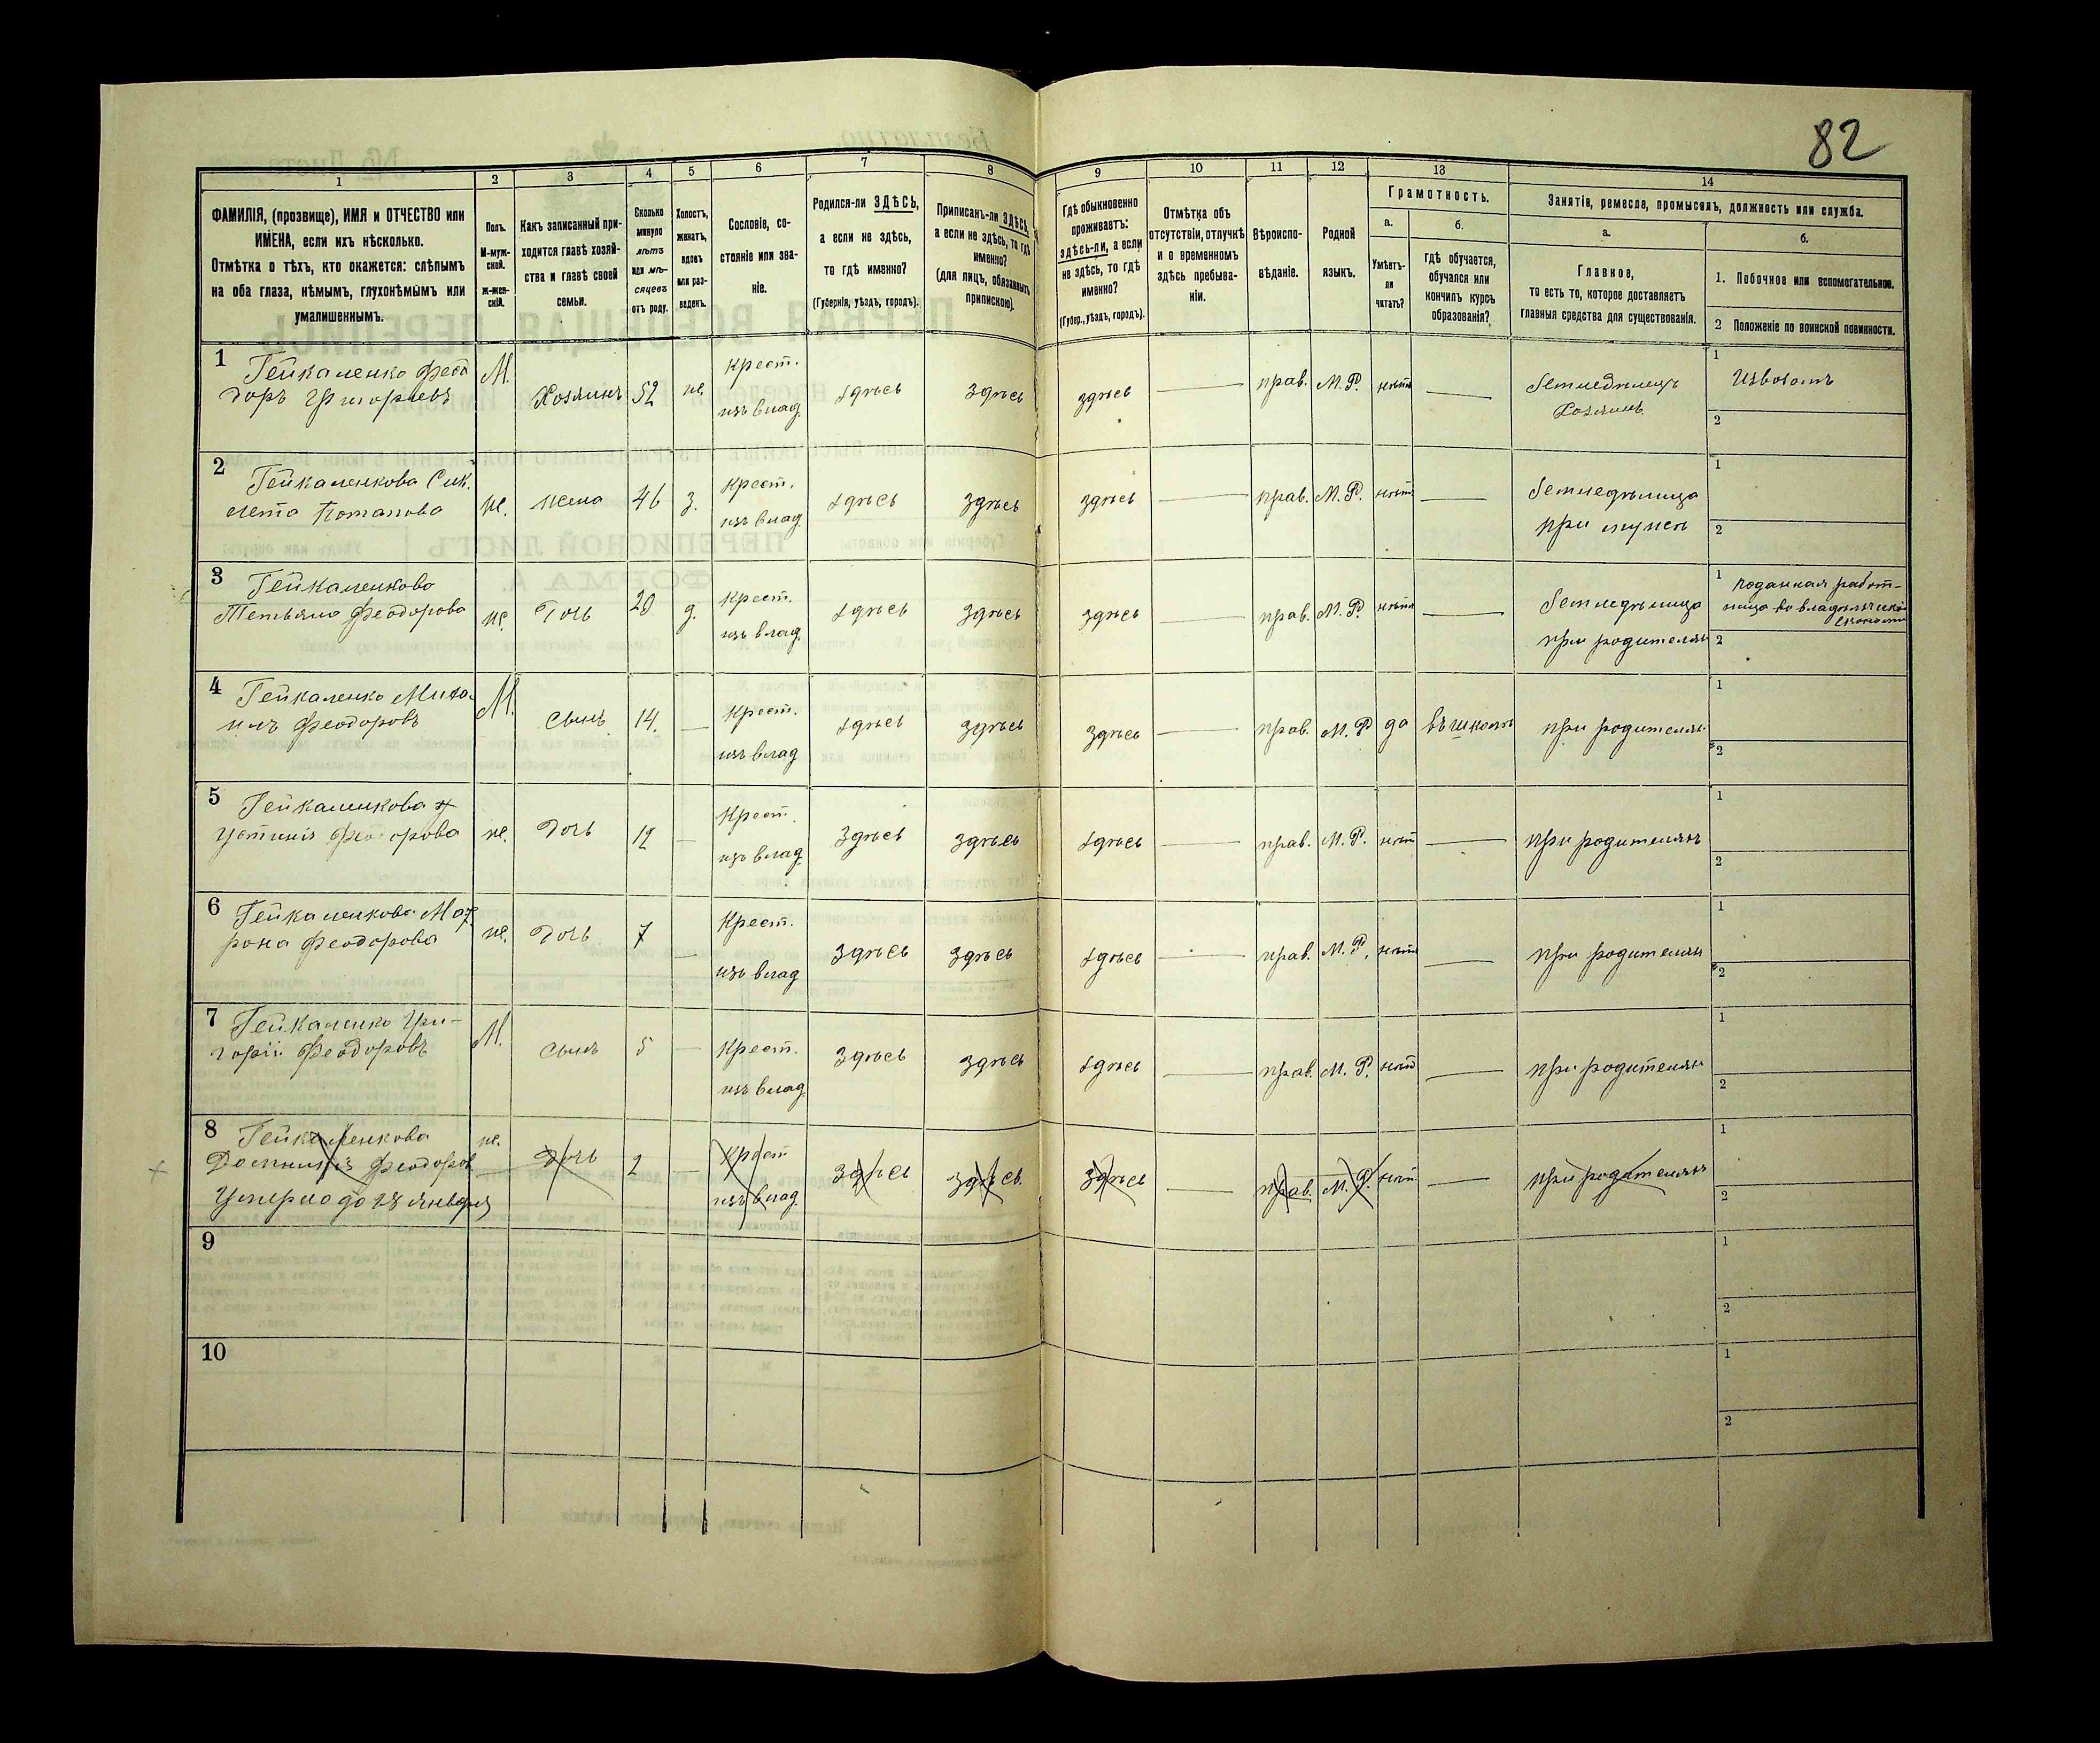 82
1
2
3
4
5
6
7
8
9
10
11
12
13
14
ФАМИЛІЯ, (прозвище), ИМЯ и ОТЧЕСТВО или
ИМЕНА, если ихъ нѣсколько.
Отмѣтка о тѣхъ, кто окажется: слѣпымъ
на оба глаза, нѣмымъ, глухонѣмымъ или
умалишеннымъ.
Полъ.
М-муж-
ской.
Ж-жен-
скій.
Какъ записанный при-
ходится главѣ хозяй-
ства и главѣ своей
семьи.
Сколько
минуло
лѣтъ
или мѣ-
сяцевъ
отъ роду.
Холостъ,
женатъ,
вдовъ
или раз-
веденъ.
Сословіе, со-
стояніе или зва-
ніе.
Родился-ли ЗДѢСЬ,
а если не здѣсь,
то гдѣ именно?
(Губернія, уѣздъ, городъ).
Приписанъ-ли ЗДѢСЬ,
а если не здѣсь, то гдѣ
именно?
(для лицъ, обязанныхъ
припискою).
Гдѣ обыкновенно
проживаетъ:
здѣсь-ли, а если
не здѣсь, то гдѣ
именно?
(Губер., уѣздъ, городъ).
Отмѣтка объ
отсутствіи, отлучкѣ
и о временномъ
здѣсь пребыва-
ніи.
Вѣроиспо-
вѣданіе.
Родной
языкъ.
Грамотность.
а.
Умѣетъ-
ли
читать?
б.
гдѣ обучается,
обучался или
кончилъ курсъ
образованія?
Занятіе, ремесло, промыселъ, должность или служба.
а.
Главное,
то есть то, которое доставляетъ
главныя средства для существованія.
б.
1. Побочное или вспомогательное.
2 Положеніе по воинской повинности.
1 Гейкаленко Фео
доръ Григорьевъ
М. Хозяинъ 52 ж. Крест. изъ влад. здѣсь здѣсь здѣсь — прав. М. Р. нѣтъ — Земледѣлецъ
Хозяинъ
1 Извозомъ
2
2 Гейкаленкова
Потапова
ж. жена 46 з. Крест. изъ влад. здѣсь здѣсь здѣсь — прав. М. Р. нѣтъ — Земледѣлица
при мужѣ
1
2
3 Гейкаленкова
Тетьяна Феодорова
ж. Дочь 20 д. Крест. изъ влад. здѣсь здѣсь здѣсь — прав. М. Р. нѣтъ — Земледѣлица
при родителяхъ
1 работ-
ница во
2
4 Гейкаленко Миха-
илъ Феодоровъ
М. Сынъ 14. — Крест. изъ влад здѣсь здѣсь здѣсь — прав. М. Р да въ школѣ при родителях
1
2
5 Гейкаленкова
Устинія Феодорова
ж. Дочь 12 — Крест. изъ влад. здѣсь здѣсь здѣсь — прав. М. Р. нѣтъ — при родителяхъ
1
2
6 Гейкаленкова Мат
рона Феодорова
ж. Дочь 7 — Крест. изъ влад здѣсь здѣсь здѣсь — прав. М. Р. нѣтъ — при родителях
1
2
7 Гейкаленко Гри-
горій Феодоровъ
М. Сынъ 5 — Крест. изъ влад. здѣсь здѣсь здѣсь — прав. М. Р. нѣтъ — при родителях
1
2
8 Гейкаленкова
Домникія Феодоров
Умерла до 28 января
ж. Дочь 2 — Крест изъ влад. здѣсь здѣсь здѣсь — прав. М. Р. нѣтъ — при родителяхъ
1
2
9
1
2
10
1
2